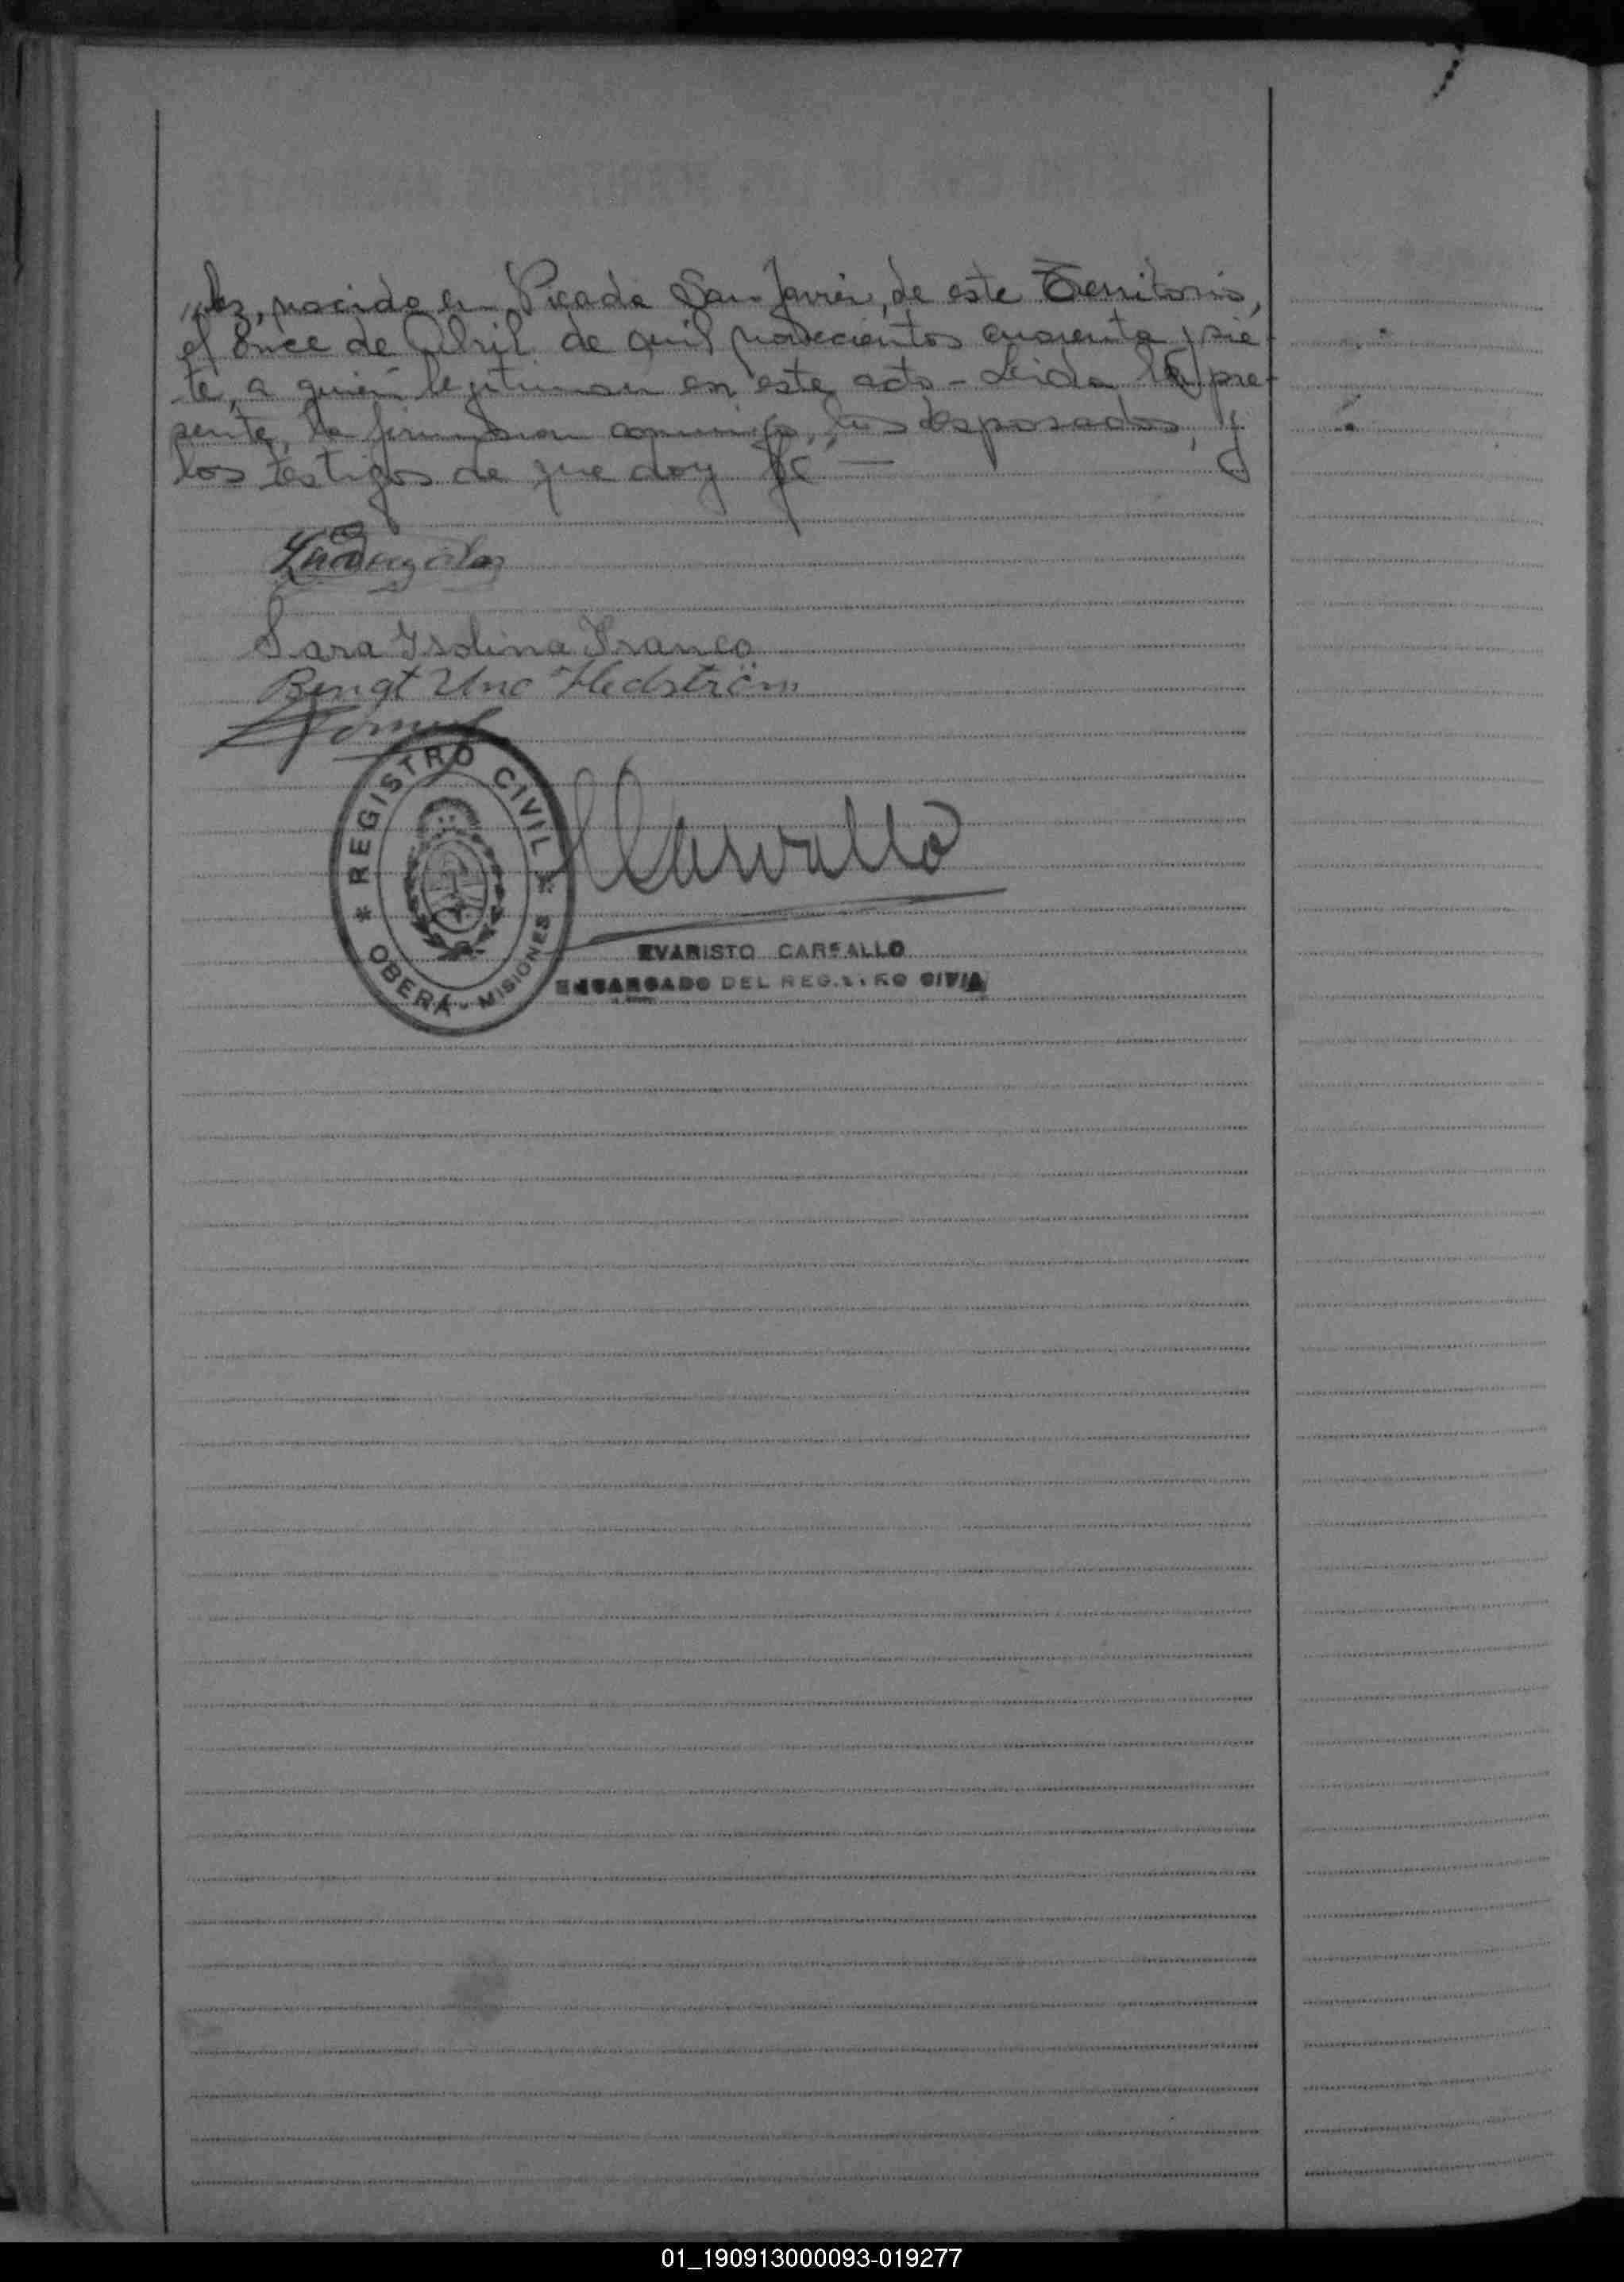 lez, nacida en Picada San Javier, de este Territorio,
el once de Abril de mil novecientos cuarenta y sie-
te, a quien legitiman en este acto - Leida la pre-
sente, la firmaron conmigo, los desposados, y
los testigos de que doy fé —
Sara Isolina Franco
Bengt Uno Hedström
REGISTRO CIVIL
OBERÁ - MISIONES
Carvallo
EVARISTO CARVALLO
ENCARGADO DEL REGISTRO CIVIL
01_190913000093-019277